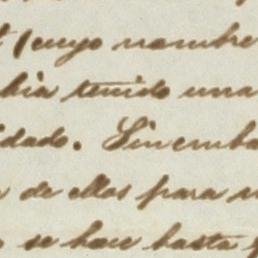 (cuyo nombre
bia tenido una
dado. Sin emba
de ellas para
se hace hasta